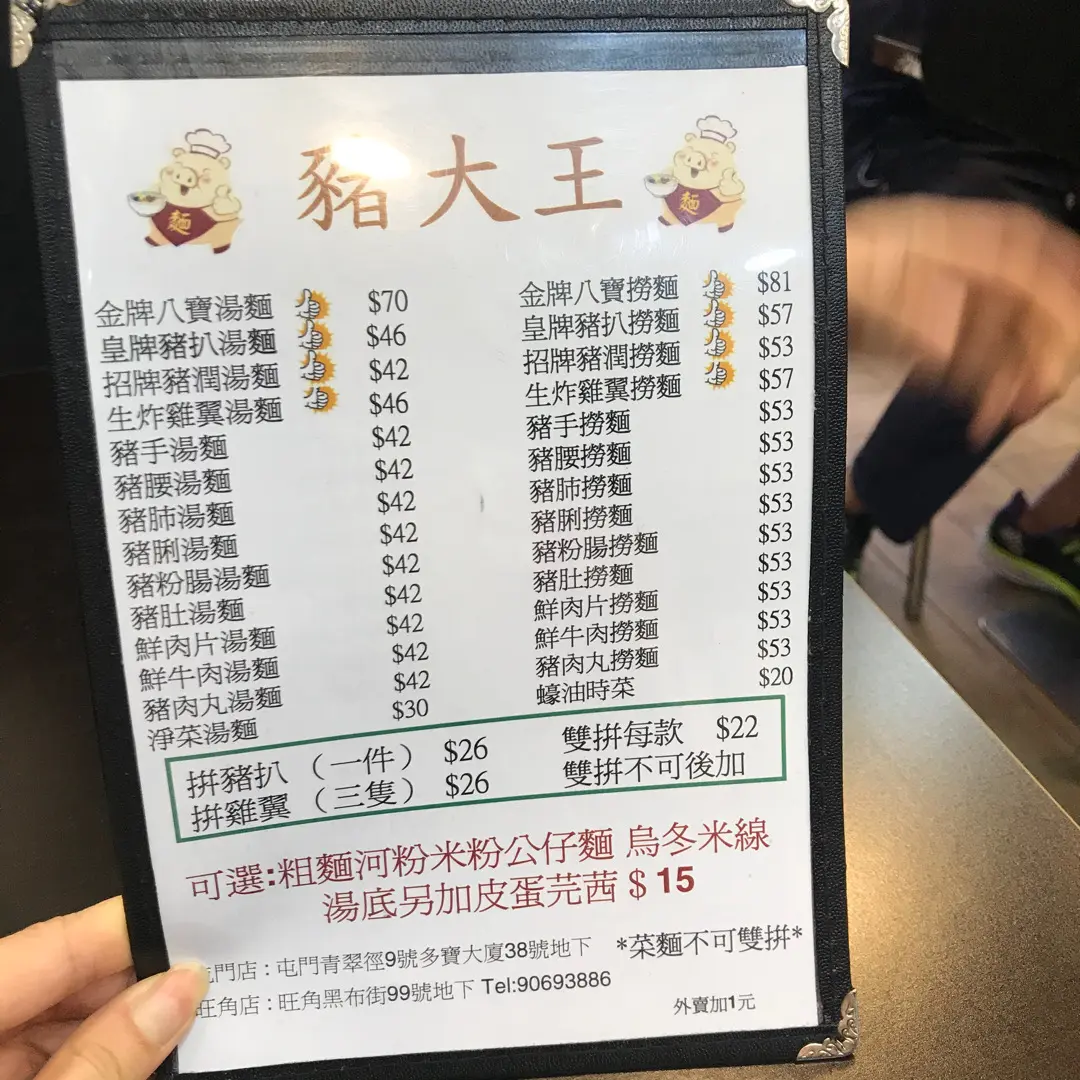 豬大王
麵
麵
金牌八寶湯麵 $70
皇牌豬扒湯麵 $46
招牌豬潤湯麵 $42
生炸雞翼湯麵 $46
豬手湯麵 $42
豬腰湯麵 $42
豬肺湯麵 $42
豬脷湯麵 $42
豬粉腸湯麵 $42
豬肚湯麵 $42
鮮肉片湯麵 $42
鮮牛肉湯麵 $42
豬肉丸湯麵 $42
淨菜湯麵 $30
金牌八寶撈麵 $81
皇牌豬扒撈麵 $57
招牌豬潤撈麵 $53
生炸雞翼撈麵 $57
豬手撈麵 $53
豬腰撈麵 $53
豬肺撈麵 $53
豬脷撈麵 $53
豬粉腸撈麵 $53
豬肚撈麵 $53
鮮肉片撈麵 $53
鮮牛肉撈麵 $53
豬肉丸撈麵 $53
蠔油時菜 $20
拼豬扒（一件） $26
拼雞翼（三隻） $26
雙拼每款 $22
雙拼不可後加
可選:粗麵河粉米粉公仔麵 烏冬米線
湯底另加皮蛋芫茜 $ 15
*菜麵不可雙拼*
屯門店：屯門青翠徑9號多寶大廈38號地下
旺角店：旺角黑布街99號地下 Tel:90693886
外賣加1元